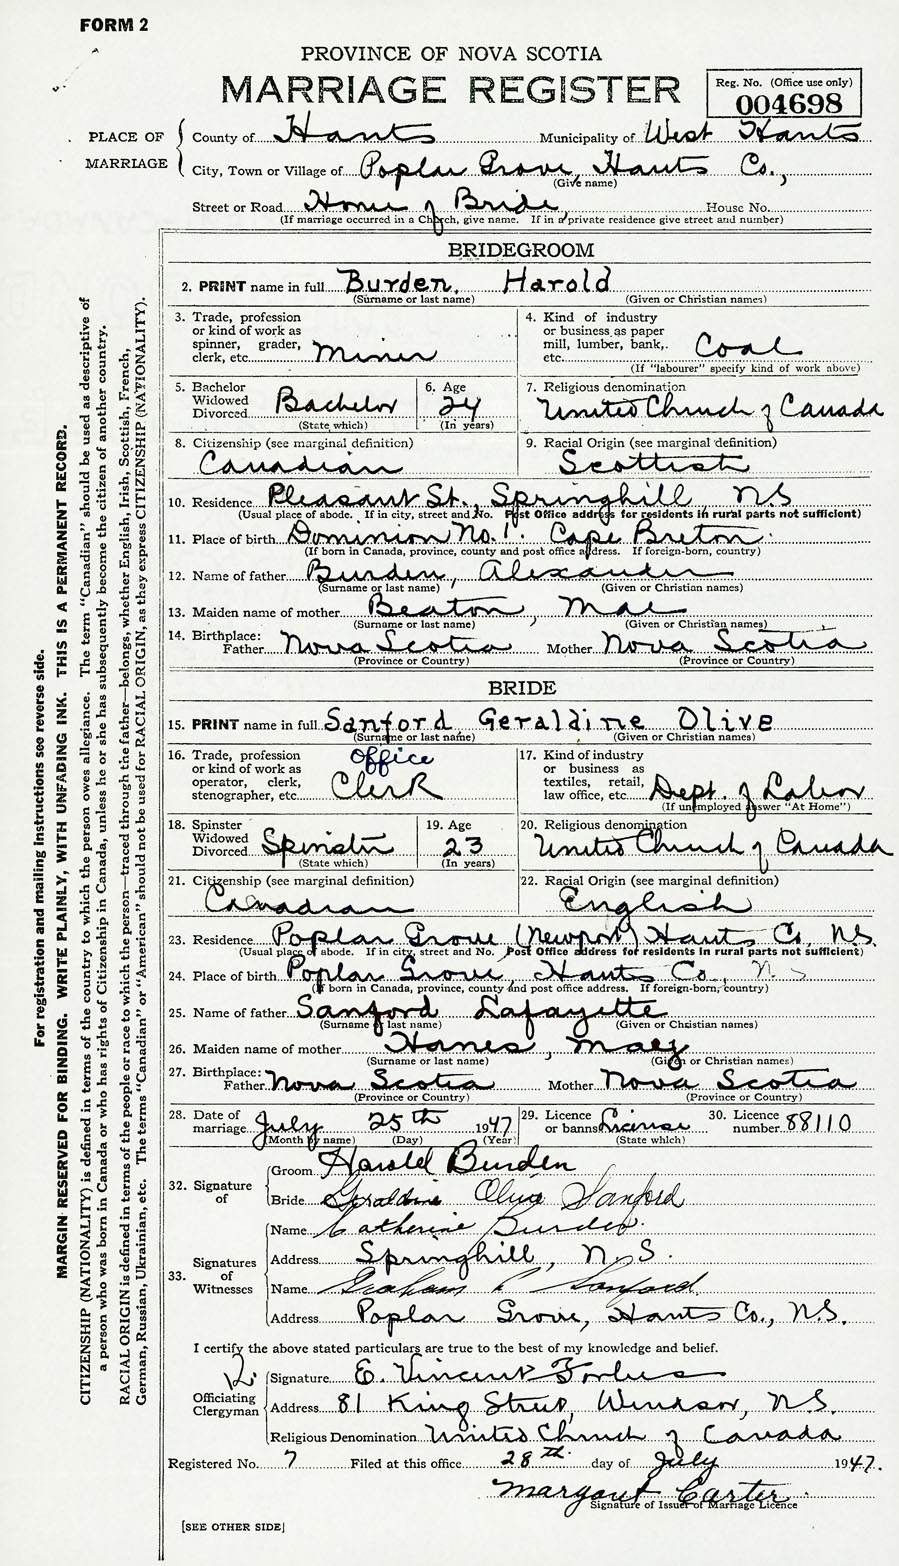 FORM 2
PROVINCE OF NOVA SCOTIA
MARRIAGE REGISTER
Reg. No. (Office use only)
004698
PLACE OF MARRIAGE
County of Hants Municipality of West Hants
City, Town or Village of Poplar Grove, Hants Co.,
(Give name)
Street or Road Home of Bride, House No.
(If marriage occurred in a Church, give name. If in a private residence give street and number)
BRIDEGROOM
2. PRINT name in full Burden, Harold
(Surname or last name) (Given or Christian names)
3. Trade, profession
or kind of work as
spinner, grader,
clerk, etc. Miner
4. Kind of industry
or business as paper
mill, lumber, bank,
etc. Coal
(If "labourer" specify kind of work above)
5. Bachelor
Widowed
Divorced Bachelor
(State which)
6. Age
24
(In years)
7. Religious denomination
United Church of Canada
8. Citizenship (see marginal definition)
Canadian
9. Racial Origin (see marginal definition)
Scottish
10. Residence Pleasant St., Springhill, N.S
(Usual place of abode. If in city, street and No. Post Office address for residents in rural parts not sufficient)
11. Place of birth Dominion No. 1. Cape Breton.
(If born in Canada, province, county and post office address. If foreign-born, country)
12. Name of father Burden, Alexander
(Surname or last name) (Given or Christian names)
13. Maiden name of mother Beaton, Mae
(Surname or last name) (Given or Christian names)
14. Birthplace:
Father Nova Scotia Mother Nova Scotia
(Province or Country) (Province or Country)
BRIDE
15. PRINT name in full Sanford, Geraldine Olive
(Surname or last name) (Given or Christian names)
16. Trade, profession
or kind of work as
operator, clerk,
stenographer, etc. office Clerk
17. Kind of industry
or business as
textiles, retail,
law office, etc. Dept. of Labor
(If unemployed answer "At Home")
18. Spinster
Widowed
Divorced Spinster
(State which)
19. Age
23
(In years)
20. Religious denomination
United Church of Canada
21. Citizenship (see marginal definition)
Canadian
22. Racial Origin (see marginal definition)
English
23. Residence Poplar Grove (Newport) Hants Co, N.S.
(Usual place of abode. If in city, street and No. Post Office address for residents in rural parts not sufficient)
24. Place of birth Poplar Grove Hants Co., N.S
(If born in Canada, province, county and post office address. If foreign-born, country)
25. Name of father Sanford Lafayette
(Surname or last name) (Given or Christian names)
26. Maiden name of mother Hanes, Mae
(Surname or last name) (Given or Christian names)
27. Birthplace:
Father Nova Scotia Mother Nova Scotia
(Province or Country) (Province or Country)
28. Date of
marriage July 25th 1947
(Month by name) (Day) (Year)
29. Licence
or banns License
(State which)
30. Licence
number 88110
32. Signature
of
Groom Harold Burden
Bride Geraldine Olive Sanford
33. Signatures
of
Witnesses
Name Catherine Burden.
Address Springhill, N.S.
Name Graham Sanford.
Address Poplar Grove, Hants Co., N.S.
I certify the above stated particulars are true to the best of my knowledge and belief.
Officiating
Clergyman
Signature E. Vincent Forbes
Address 81 King Street, Windsor, N.S.
Religious Denomination United Church of Canada
Registered No. 7 Filed at this office 28th. day of July 1947.
Margaret Carter
Signature of Issuer of Marriage Licence
[SEE OTHER SIDE]
For registration and mailing instructions see reverse side.
MARGIN RESERVED FOR BINDING. WRITE PLAINLY, WITH UNFADING INK. THIS IS A PERMANENT RECORD.
CITIZENSHIP (NATIONALITY) is defined in terms of the country to which the person owes allegiance. The term "Canadian" should be used as descriptive of
a person who was born in Canada or who has rights of Citizenship in Canada, unless he or she has subsequently become the citizen of another country.
RACIAL ORIGIN is defined in terms of the people or race to which the person—traced through the father—belongs, whether English, Irish, Scottish, French,
German, Russian, Ukrainian, etc. The terms "Canadian" or "American" should not be used for RACIAL ORIGIN, as they express CITIZENSHIP (NATIONALITY).